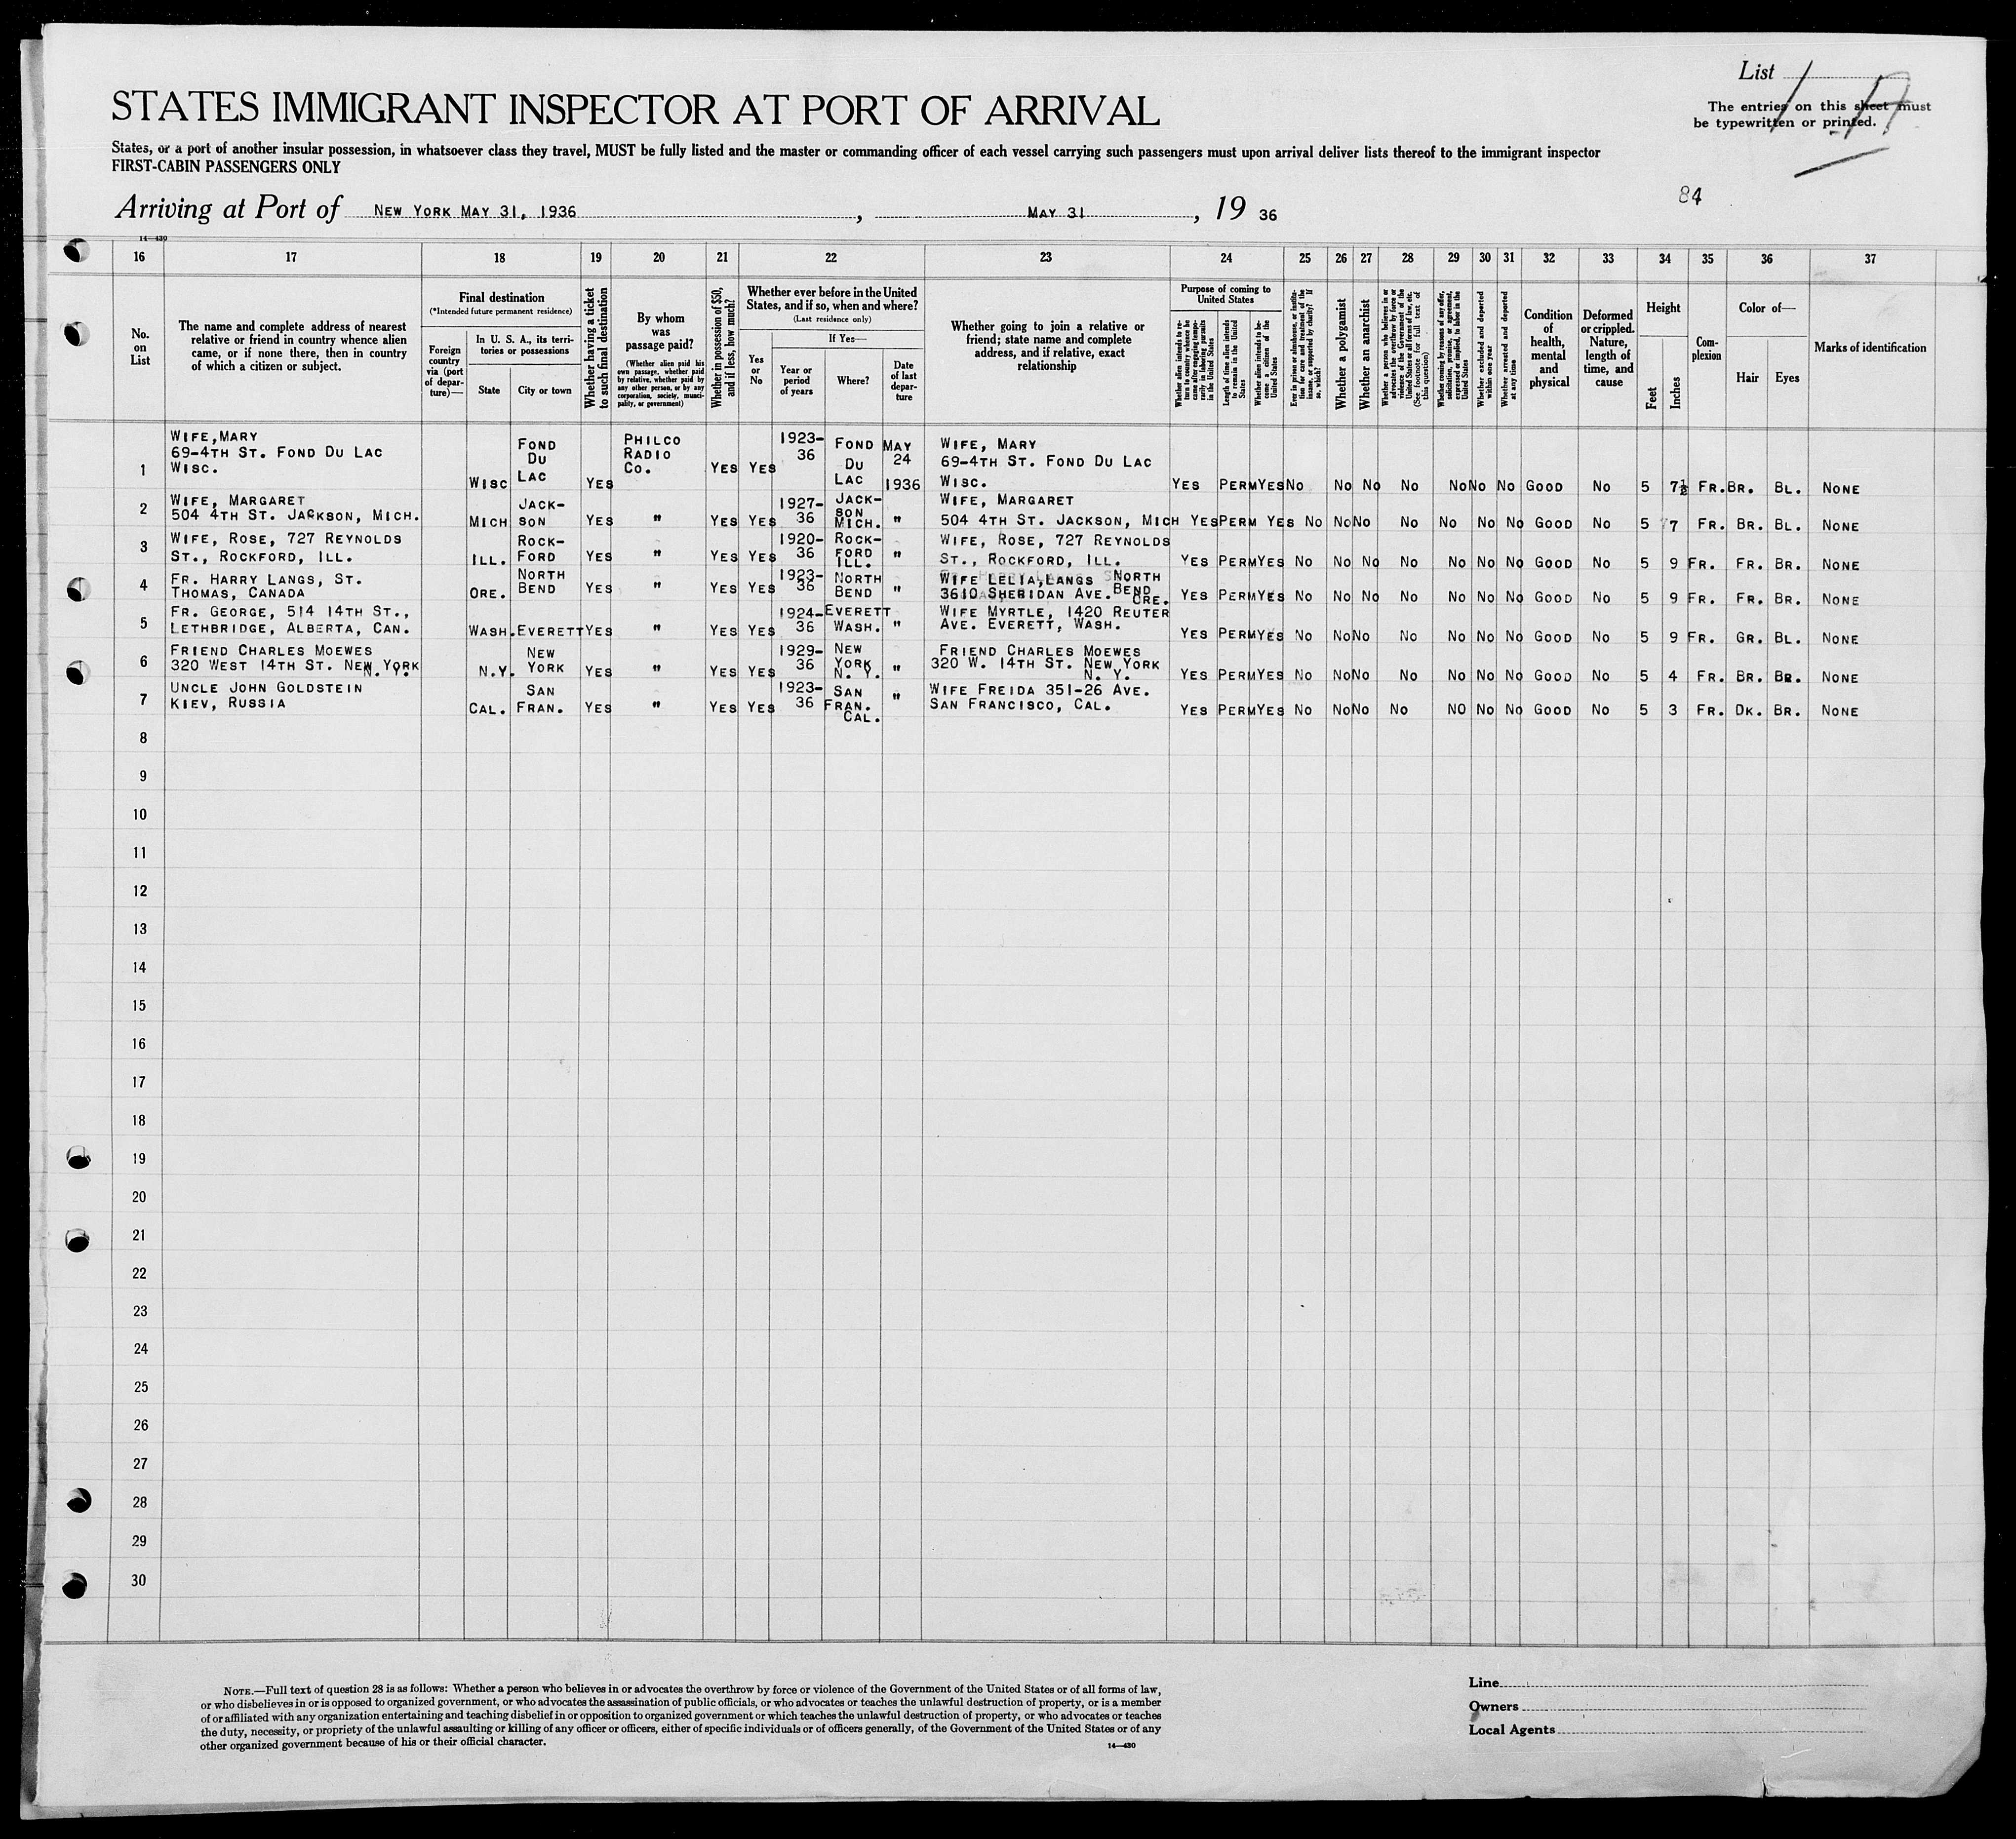 List 1-A
The entries on this sheet must
be typewritten or printed.
STATES IMMIGRANT INSPECTOR AT PORT OF ARRIVAL
States, or a port of another insular possession, in whatsoever class they travel, MUST be fully listed and the master or commanding officer of each vessel carrying such passengers must upon arrival deliver lists thereof to the immigrant inspector
FIRST-CABIN PASSENGERS ONLY
84
Arriving at Port of NEW YORK MAY 31, 1936, MAY 31, 19 36
14—430
16 17 18 19 20 21 22 23 24 25 26 27 28 29 30 31 32 33 34 35 36 37
No.
on
List
The name and complete address of nearest
relative or friend in country whence alien
came, or if none there, then in country
of which a citizen or subject.
Final destination
(*Intended future permanent residence)
Foreign
country
via (port
of depar-
ture)—
In U. S. A., its terri-
tories or possessions
State
City or town
Whether having a ticket
to such final destination
By whom
was
passage paid?
(Whether alien paid his
own passage, whether paid
by relative, whether paid by
any other person, or by any
corporation, society, munici-
pality, or government)
Whether in possession of $50,
and if less, how much?
Whether ever before in the United
States, and if so, when and where?
(Last residence only)
Yes
or
No
If Yes—
Year or
period
of years
Where?
Date
of last
depar-
ture
Whether going to join a relative or
friend; state name and complete
address, and if relative, exact
relationship
Purpose of coming to
United States
Whether alien intends to re-
turn to country whence he
came after engaging tempo-
rarily in laboring pursuits
in the United States
Length of time alien intends
to remain in the United
States
Whether alien intends to be-
come a citizen of the
United States
Ever in prison or almshouse, or institu-
tion for care and treatment of the
insane, or supported by charity? If
so, which?
Whether a polygamist
Whether an anarchist
Whether a person who believes in or
advocates the overthrow by force or
violence of the Government of the
United States or all forms of law, etc.
(See footnote for full text of
this question)
Whether coming by reason of any offer,
solicitation, promise, or agreement,
expressed or implied, to labor in the
United States
Whether excluded and deported
within one year
Whether arrested and deported
at any time
Condition
of
health,
mental
and
physical
Deformed
or crippled.
Nature,
length of
time, and
cause
Height
Feet
Inches
Com-
plexion
Color of—
Hair
Eyes
Marks of identification
WIFE, MARY
69-4TH ST. FOND DU LAC
1 WISC.
WISC
FOND
DU
LAC
YES
PHILCO
RADIO
CO.
YES YES
1923-
36
FOND
DU
LAC
MAY
24
1936
WIFE, MARY
69-4TH ST. FOND DU LAC
WISC.
YES PERM YES NO NO NO NO NO NO NO GOOD NO 5 7½ FR. BR. BL. NONE
WIFE, MARGARET
2 504 4TH ST. JACKSON, MICH.
MICH
JACK-
SON
YES " YES YES
1927-
36
JACK-
SON
MICH.
"
WIFE, MARGARET
504 4TH ST. JACKSON, MICH YES PERM YES NO NO NO NO NO NO NO GOOD NO 5 7 FR. BR. BL. NONE
3 WIFE, ROSE, 727 REYNOLDS
ST., ROCKFORD, ILL.
ILL.
ROCK-
FORD
YES " YES YES
1920-
36
ROCK-
FORD
ILL.
"
WIFE, ROSE, 727 REYNOLDS
ST., ROCKFORD, ILL.
YES PERM YES NO NO NO NO NO NO NO GOOD NO 5 9 FR. FR. BR. NONE
4 FR. HARRY LANGS, ST.
THOMAS, CANADA
ORE.
NORTH
BEND
YES " YES YES
1923-
36
NORTH
BEND
"
WIFE LELIA, LANGS NORTH
3610 SHERIDAN AVE. BEND
ORE.
YES PERM YES NO NO NO NO NO NO NO GOOD NO 5 9 FR. FR. BR. NONE
FR. GEORGE, 514 14TH ST.,
5 LETHBRIDGE, ALBERTA, CAN.
WASH. EVERETT YES " YES YES
1924-
36
EVERETT
WASH.
"
WIFE MYRTLE, 1420 REUTER
AVE. EVERETT, WASH.
YES PERM YES NO NO NO NO NO NO NO GOOD NO 5 9 FR. GR. BL. NONE
FRIEND CHARLES MOEWES
6 320 WEST 14TH ST. NEW YORK
N. Y.
N.Y.
NEW
YORK
YES " YES YES
1929-
36
NEW
YORK
N. Y.
"
FRIEND CHARLES MOEWES
320 W. 14TH ST. NEW YORK
N. Y.
YES PERM YES NO NO NO NO NO NO NO GOOD NO 5 4 FR. BR. BR. NONE
UNCLE JOHN GOLDSTEIN
7 KIEV, RUSSIA
CAL.
SAN
FRAN.
YES " YES YES
1923-
36
SAN
FRAN.
CAL.
"
WIFE FREIDA 351-26 AVE.
SAN FRANCISCO, CAL.
YES PERM YES NO NO NO NO NO NO NO GOOD NO 5 3 FR. DK. BR. NONE
8
9
10
11
12
13
14
15
16
17
18
19
20
21
22
23
24
25
26
27
28
29
30
NOTE.—Full text of question 28 is as follows: Whether a person who believes in or advocates the overthrow by force or violence of the Government of the United States or of all forms of law,
or who disbelieves in or is opposed to organized government, or who advocates the assassination of public officials, or who advocates or teaches the unlawful destruction of property, or is a member
of or affiliated with any organization entertaining and teaching disbelief in or opposition to organized government or which teaches the unlawful destruction of property, or who advocates or teaches
the duty, necessity, or propriety of the unlawful assaulting or killing of any officer or officers, either of specific individuals or of officers generally, of the Government of the United States or of any
other organized government because of his or their official character.
14—430
Line
Owners
Local Agents